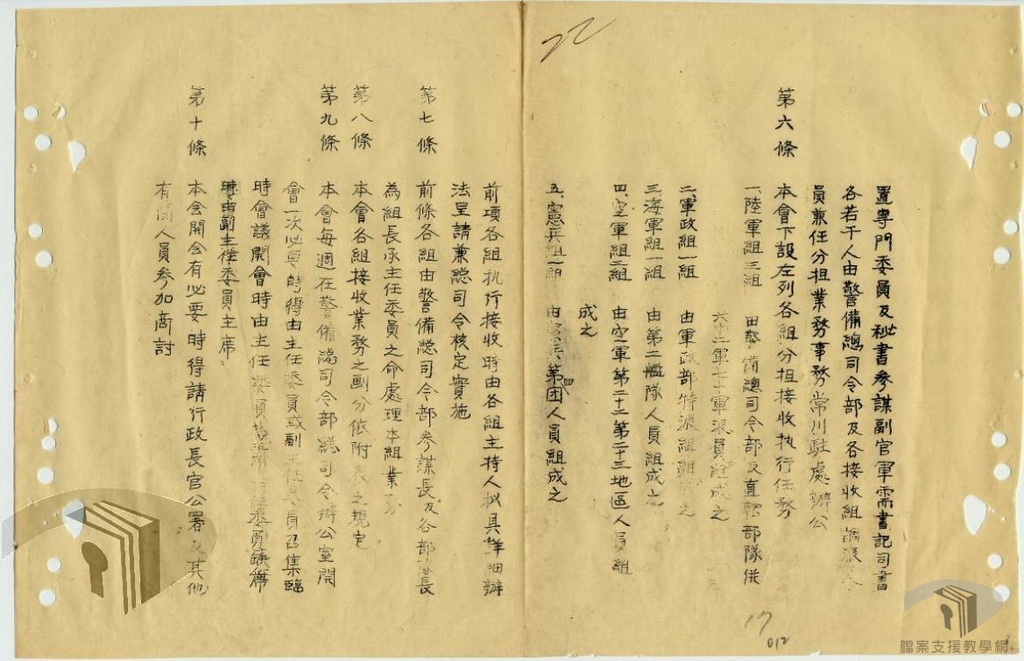 置專門委員及秘書參謀副官軍需書記司書
各若干人由警備總司令部及各接收組調派人
員兼任分担業務事務常川駐處辦公
第六條 本會下設左列各組分担接收执行任務
一、陸軍組三組 由警備總司令部及直轄部隊供
六十二軍七十軍派員組成之
二、軍政組一組 由軍政部特派組組成之
三、海軍組一組 由第二艦隊人員組成之
四、空軍組二組 由空軍第二十二第二十三地區人員組
成之
五、憲兵組一組 由憲兵第四团人員組成之
前項各組执行接收時由各組主持人拟具詳細辦
法呈請兼總司令核定實施
第七條 前條各組由警備總司令部參謀長及各部隊長
為組長承主任委員之命處理本組業務
第八條 本會各組接收業務之劃分依附表之規定
第九條 本會每週在警備總司令部總司令辦公室開
會一次必要時得由主任委員或副主任委員召集臨
時會議開會時由主任委員為主席主任委員缺席
時由副主任委員主席
第十條 本会開会有必要時得請行政長官公署及其他
有関人員參加商討
17
012
檔案支援教學網